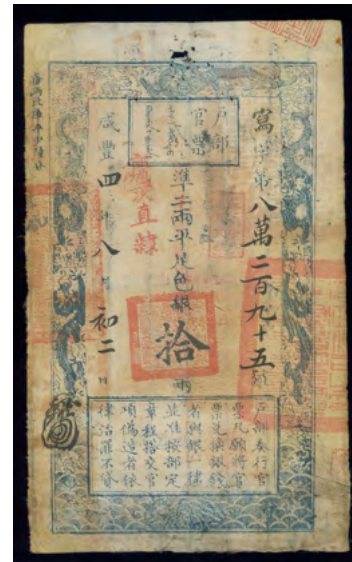 戶部
官票
寫字第八萬二百九十五號
準二兩平足色銀拾兩
直隸
咸豐四年八月初二日
戶部奏行官
票凡願將官
票兌換銀錢
者與銀一律
並準按部定
章程搭交官
項偽造者依
律治罪不貸